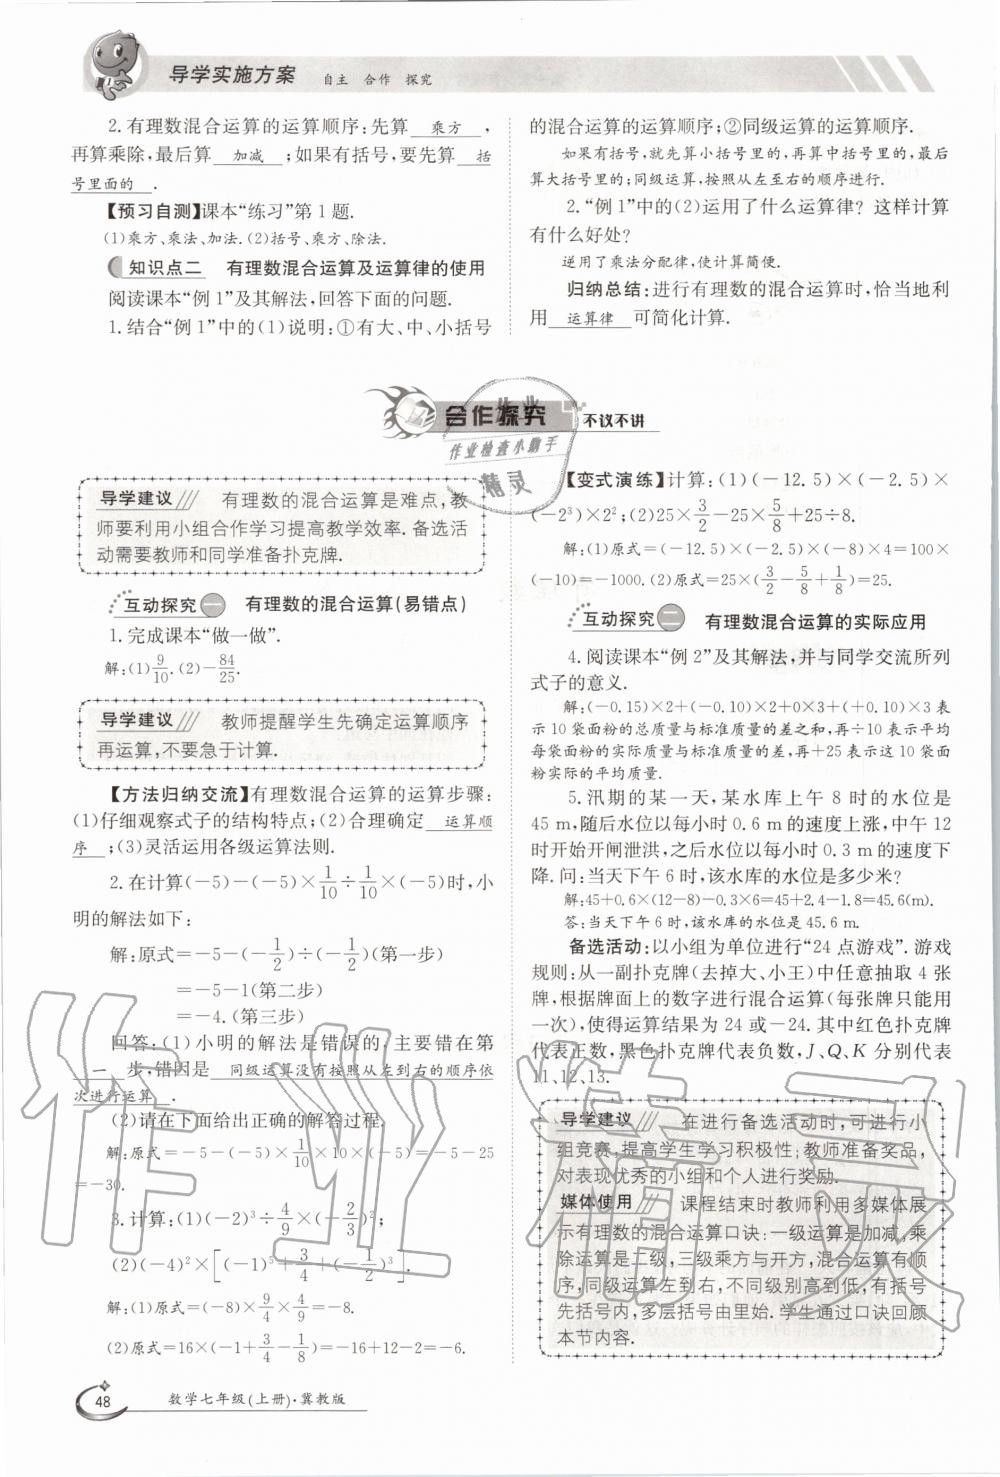 导学实施方案 自主 合作 探究
2.有理数混合运算的运算顺序:先算 乘方 ,
再算乘除,最后算 加减 ;如果有括号,要先算 括
号里面的 .
【预习自测】课本“练习”第1题.
(1)乘方、乘法、加法.(2)括号、乘方、除法.
知识点二 有理数混合运算及运算律的使用
阅读课本“例1”及其解法,回答下面的问题.
1.结合“例1”中的(1)说明:①有大、中、小括号
的混合运算的运算顺序;②同级运算的运算顺序.
如果有括号,就先算小括号里的,再算中括号里的,最后
算大括号里的;同级运算,按照从左至右的顺序进行.
2.“例1”中的(2)运用了什么运算律? 这样计算
有什么好处?
逆用了乘法分配律,使计算简便.
归纳总结:进行有理数的混合运算时,恰当地利
用 运算律 可简化计算.
合作探究 不议不讲
作业
作业检查小助手
精灵
导学建议 有理数的混合运算是难点,教
师要利用小组合作学习提高教学效率.备选活
动需要教师和同学准备扑克牌.
互动探究一 有理数的混合运算(易错点)
1.完成课本“做一做”.
解:(1)9/10.(2)-84/25.
导学建议 教师提醒学生先确定运算顺序
再运算,不要急于计算.
【方法归纳交流】有理数混合运算的运算步骤:
(1)仔细观察式子的结构特点;(2)合理确定 运算顺
序 ;(3)灵活运用各级运算法则.
2.在计算(-5)-(-5)×1/10÷1/10×(-5)时,小
明的解法如下:
解:原式=-5-(-1/2)÷(-1/2)(第一步)
=-5-1(第二步)
=-4.(第三步)
回答:(1)小明的解法是错误的,主要错在第
一 步,错因是 同级运算没有按照从左到右的顺序依
次进行运算 .
(2)请在下面给出正确的解答过程.
解:原式=-5-(-5)×1/10×10×(-5)=-5-25
=-30.
3.计算:(1)(-2)³÷4/9×(-2/3)²;
(2)(-4)²×[(-1)⁵+3/4+(-1/2)³].
解:(1)原式=(-8)×9/4×4/9=-8.
(2)原式=16×(-1+3/4-1/8)=-16+12-2=-6.
【变式演练】计算:(1)(-12.5)×(-2.5)×
(-2³)×2²;(2)25×3/2-25×5/8+25÷8.
解:(1)原式=(-12.5)×(-2.5)×(-8)×4=100×
(-10)=-1000.(2)原式=25×(3/2-5/8+1/8)=25.
互动探究二 有理数混合运算的实际应用
4.阅读课本“例2”及其解法,并与同学交流所列
式子的意义.
解:(-0.15)×2+(-0.10)×2+0×3+(+0.10)×3表
示10袋面粉的总质量与标准质量的差之和,再÷10表示平均
每袋面粉的实际质量与标准质量的差,再+25表示这10袋面
粉实际的平均质量.
5.汛期的某一天,某水库上午8时的水位是
45 m,随后水位以每小时0.6 m的速度上涨,中午12
时开始开闸泄洪,之后水位以每小时0.3 m的速度下
降.问:当天下午6时,该水库的水位是多少米?
解:45+0.6×(12-8)-0.3×6=45+2.4-1.8=45.6(m).
答:当天下午6时,该水库的水位是45.6 m.
备选活动:以小组为单位进行“24点游戏”.游戏
规则:从一副扑克牌(去掉大、小王)中任意抽取4张
牌,根据牌面上的数字进行混合运算(每张牌只能用
一次),使得运算结果为24或-24.其中红色扑克牌
代表正数,黑色扑克牌代表负数,J、Q、K分别代表
11、12、13.
导学建议 在进行备选活动时,可进行小
组竞赛,提高学生学习积极性;教师准备奖品,
对表现优秀的小组和个人进行奖励.
媒体使用 课程结束时教师利用多媒体展
示有理数的混合运算口诀:一级运算是加减,乘
除运算是二级,三级乘方与开方,混合运算有顺
序,同级运算左到右,不同级别高到低,有括号
先括号内,多层括号由里始.学生通过口诀回顾
本节内容.
48 数学七年级(上册)·冀教版
作业精灵